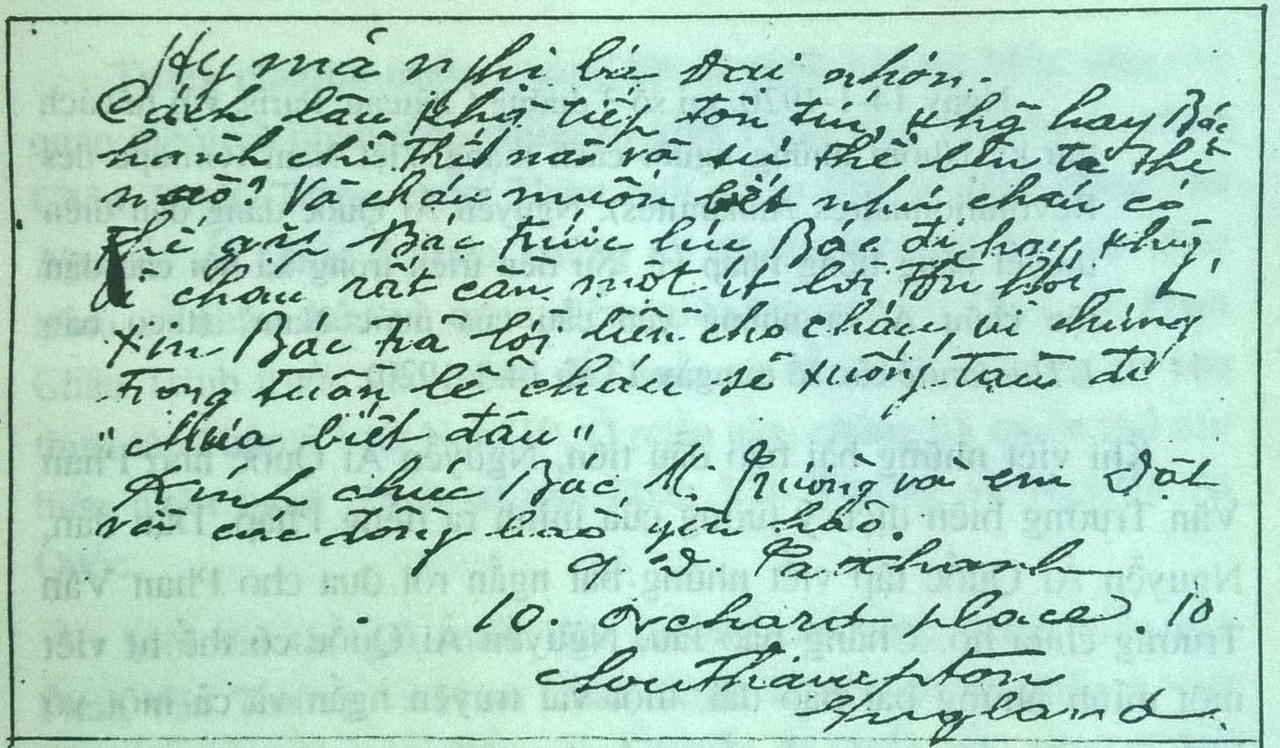 Hy mã nghi bá đại nhơn.
Cách lâu không tiếp tôn tín, khg hay Bác
hành chỉ thế nào và sự thế bên ta thế
nào? Và cháu muốn biết như cháu có
thể gặp Bác trước lúc Bác đi hay khg,
vì cháu rất cần một ít lời
Xin Bác trả lời liền cho cháu, vì chừng
trong tuần lễ cháu sẽ xuống tàu đi
"Chưa biết đâu"
Kính chúc Bác, M. Trường và em Dật
và các đồng bào yên hảo.
10. Orchard place. 10
Southampton
England